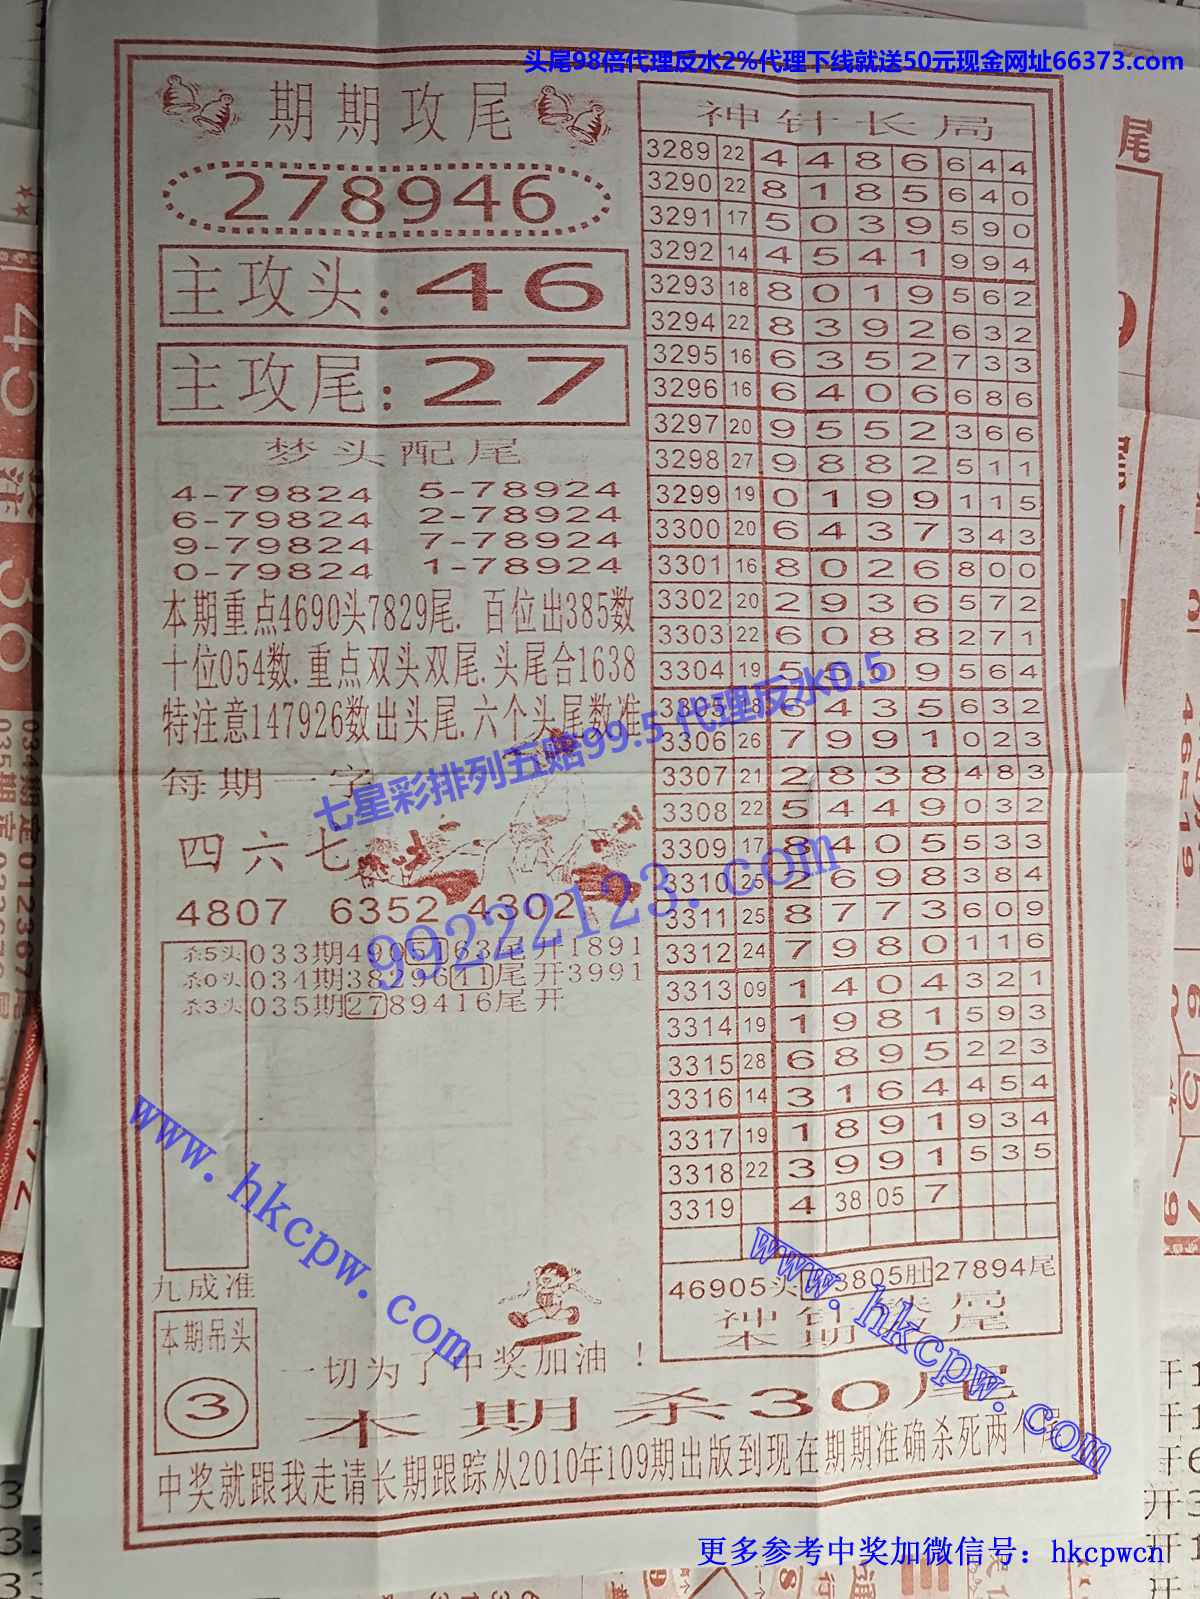 头尾98倍代理反水2%代理下线就送50元现金网址66373.com
期期攻尾
278946
主攻头:46
主攻尾:27
梦头配尾
4-79824 5-78924
6-79824 2-78924
9-79824 7-78924
0-79824 1-78924
本期重点4690头7829尾.百位出385数
十位054数.重点双头双尾.头尾合1638
特注意147926数出头尾.六个头尾数准
每期一字
四六七
4807 6352 4302
杀5头 033期4905163尾开1891
杀0头 034期3829611尾开3991
杀3头 035期2789416尾开
九成准
本期吊头
3
一切为了中奖加油!
神针长局
3289 22 4 4 8 6 6 4 4
3290 22 8 1 8 5 6 4 0
3291 17 5 0 3 9 5 9 0
3292 14 4 5 4 1 9 9 4
3293 18 8 0 1 9 5 6 2
3294 22 8 3 9 2 6 3 2
3295 16 6 3 5 2 7 3 3
3296 16 6 4 0 6 6 8 6
3297 20 9 5 5 2 3 6 6
3298 27 9 8 8 2 5 1 1
3299 19 0 1 9 9 1 1 5
3300 20 6 4 3 7 3 4 3
3301 16 8 0 2 6 8 0 0
3302 20 2 9 3 6 5 7 2
3303 22 6 0 8 8 2 7 1
3304 19 5 0 9 5 6 4
3305 18 6 4 3 5 6 3 2
3306 26 7 9 9 1 0 2 3
3307 21 2 8 3 8 4 8 3
3308 22 5 4 4 9 0 3 2
3309 17 8 4 0 5 5 3 3
3310 25 2 6 9 8 3 8 4
3311 25 8 7 7 3 6 0 9
3312 24 7 9 8 0 1 1 6
3313 09 1 4 0 4 3 2 1
3314 19 1 9 8 1 5 9 3
3315 28 6 8 9 5 2 2 3
3316 14 3 1 6 4 4 5 4
3317 19 1 8 9 1 9 3 4
3318 22 3 9 9 1 5 3 5
3319 4 38 05 7
46905头 3805肚 27894尾
神针 局
本期 尾
本期杀30尾
中奖就跟我走请长期跟踪从2010年109期出版到现在期期准确杀死两个尾
七星彩排列五赔99.5 代理反水0.5
99222123.com
www.hkcpw.com
www.hkcpw.com
更多参考中奖加微信号：hkcpwcn